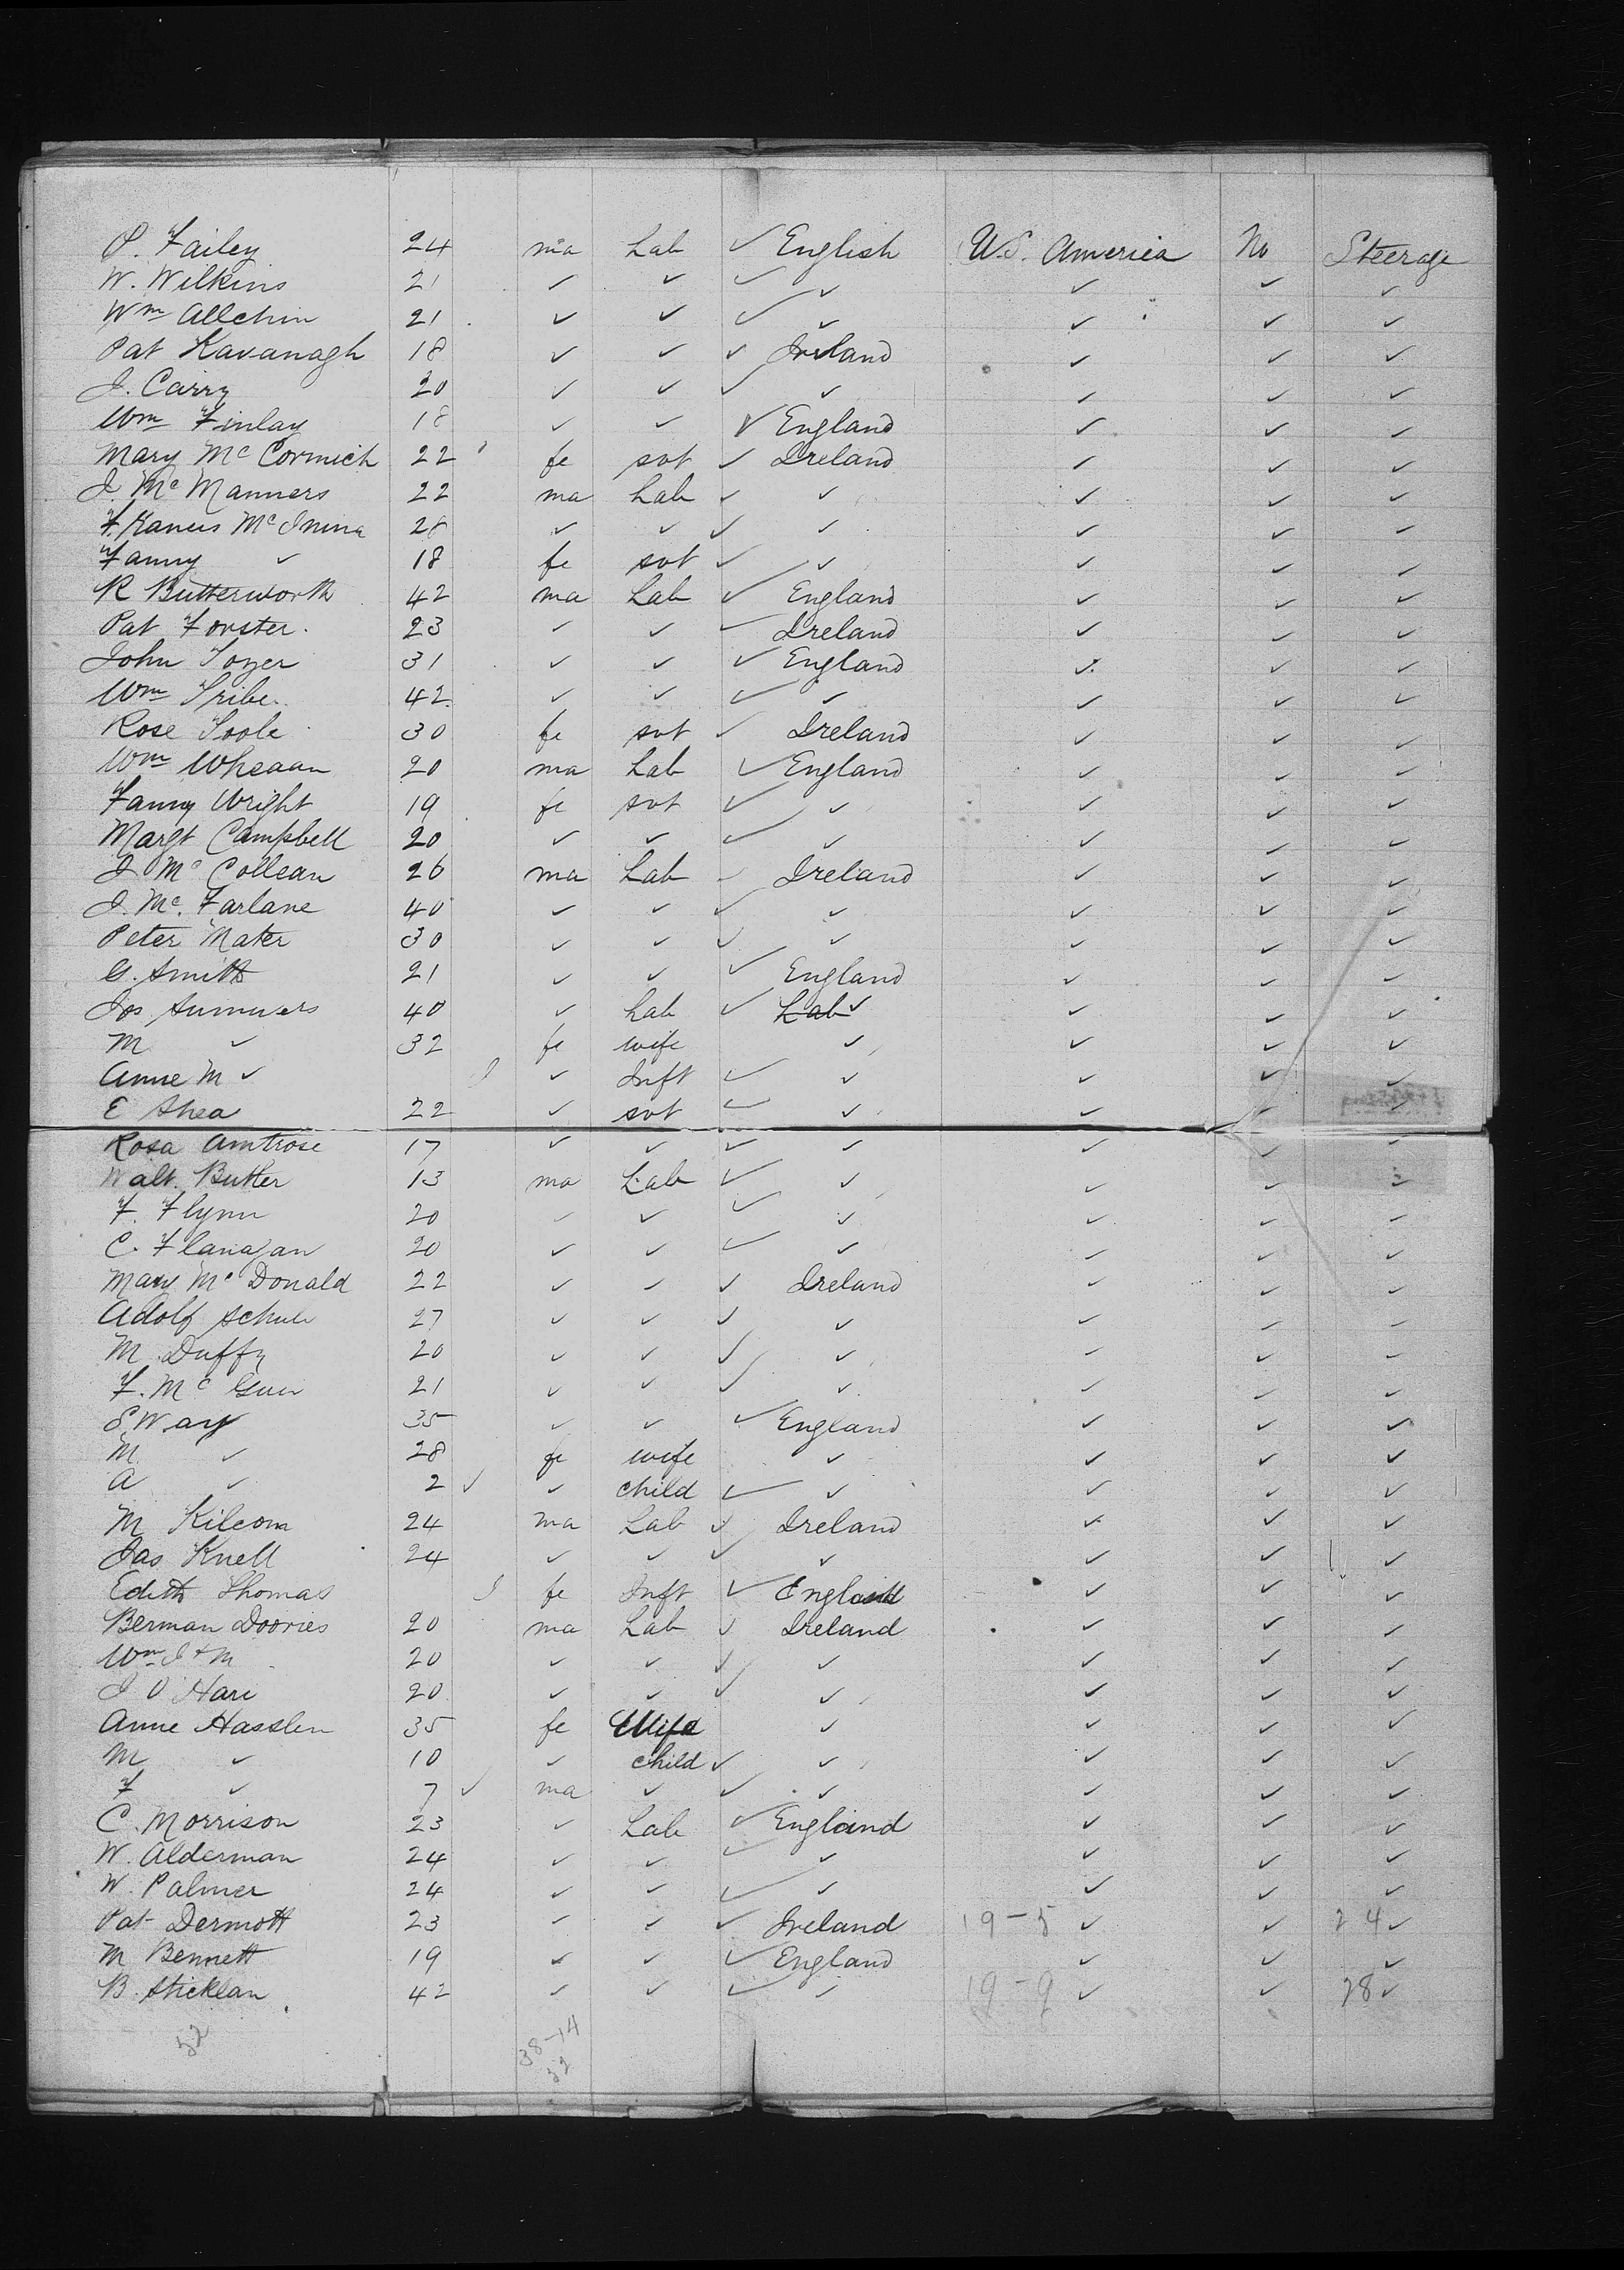 P. Failey 24 ma Lab ✓ English U.S. America No Steerage
W. Wilkins 21 ✓ ✓ ✓ ✓ ✓ ✓ ✓
Wm Allchin 21 ✓ ✓ ✓ ✓ ✓ ✓ ✓
Pat Kavanagh 18 ✓ ✓ ✓ Ireland ✓ ✓ ✓
J. Carry 20 ✓ ✓ ✓ ✓ ✓ ✓ ✓
Wm Finlay 18 ✓ ✓ ✓ England ✓ ✓ ✓
Mary Mc Cormick 22 fe svt ✓ Ireland ✓ ✓ ✓
J. Mc Manners 22 ma Lab ✓ ✓ ✓ ✓ ✓
Francis Mc 28 ✓ ✓ ✓ ✓ ✓ ✓ ✓
Fanny ✓ 18 fe svt ✓ ✓ ✓ ✓ ✓
R Butterworth 42 ma Lab ✓ England ✓ ✓ ✓
Pat Forster 23 ✓ ✓ ✓ Ireland ✓ ✓ ✓
John 31 ✓ ✓ ✓ England ✓ ✓ ✓
Wm Tribe 42 ✓ ✓ ✓ ✓ ✓ ✓ ✓
Rose Toole 30 fe svt ✓ Ireland ✓ ✓ ✓
Wm Wheaan 20 ma Lab ✓ England ✓ ✓ ✓
Fanny Wright 19 fe svt ✓ ✓ ✓ ✓ ✓
Margt Campbell 20 ✓ ✓ ✓ ✓ ✓ ✓ ✓
J Mc Collean 26 ma Lab ✓ Ireland ✓ ✓ ✓
J. Mc. Farlane 40 ✓ ✓ ✓ ✓ ✓ ✓ ✓
Peter Mater 30 ✓ ✓ ✓ ✓ ✓ ✓ ✓
G. Smith 21 ✓ ✓ ✓ England ✓ ✓ ✓
Jos Summers 40 ✓ Lab ✓ Lab ✓ ✓ ✓ ✓
M ✓ 32 fe wife ✓ ✓ ✓ ✓
Anne M ✓ ✓ Inft ✓ ✓ ✓ ✓ ✓
E Shea 22 ✓ svt ✓ ✓ ✓ ✓ ✓
Rosa Amtrose 17 ✓ ✓ ✓ ✓ ✓ ✓ ✓
Walt. Butler 13 ma Lab ✓ ✓ ✓ ✓ ✓
F. Flynn 20 ✓ ✓ ✓ ✓ ✓ ✓ ✓
C. Flanagan 20 ✓ ✓ ✓ ✓ ✓ ✓ ✓
Mary Mc Donald 22 ✓ ✓ ✓ Ireland ✓ ✓ ✓
Adolf 27 ✓ ✓ ✓ ✓ ✓ ✓ ✓
M. Duffy 20 ✓ ✓ ✓ ✓ ✓ ✓ ✓
F. Mc 21 ✓ ✓ ✓ ✓ ✓ ✓ ✓
S. Way 35 ✓ ✓ ✓ England ✓ ✓ ✓
M ✓ 28 fe wife ✓ ✓ ✓ ✓
A ✓ 2 ✓ ✓ child ✓ ✓ ✓ ✓ ✓
M 24 ma Lab ✓ Ireland ✓ ✓ ✓
Jas Knell 24 ✓ ✓ ✓ ✓ ✓ ✓ ✓
Edith Thomas fe Inft ✓ England ✓ ✓ ✓
Berman Doories 20 ma Lab ✓ Ireland ✓ ✓ ✓
Wm 20 ✓ ✓ ✓ ✓ ✓ ✓ ✓
J O Hare 20 ✓ ✓ ✓ ✓ ✓ ✓ ✓
Anne Hasslen 35 fe Wife ✓ ✓ ✓ ✓
M ✓ 10 ✓ child ✓ ✓ ✓ ✓ ✓
F ✓ 7 ✓ ma ✓ ✓ ✓ ✓ ✓ ✓
C. Morrison 23 ✓ Lab ✓ England ✓ ✓ ✓
W. Alderman 24 ✓ ✓ ✓ ✓ ✓ ✓ ✓
W. Palmer 24 ✓ ✓ ✓ ✓ ✓ ✓ ✓
Pat Dermott 23 ✓ ✓ ✓ Ireland 19-5 ✓ ✓ 24 ✓
M Bennett 19 ✓ ✓ ✓ England ✓ ✓ ✓
B. Sticklan 42 ✓ ✓ ✓ ✓ 19-9 ✓ ✓ 28 ✓
52 38-14
52